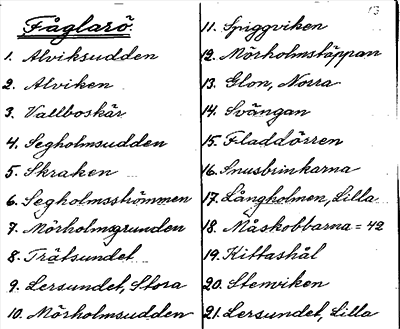 Fåglarö.
1. Alviksudden
2. Alviken
3. Vallboskär
4. Segholmsudden
5. Skraken
6. Segholmsströmmen
7. Mörholmsgrunden
8. Trätsundet
9. Lersundet, Stora
10. Mörholmsudden
13
11. Spiggviken
12. Mörholmstäppan
13. Glon, Norra
14. Svängan
15. Fladdörren
16. Snusbrinkarna
17. Långholmen, Lilla
18. Måskobbarna = 42
19. Kittashål
20. Stenviken
21. Lersundet, Lilla